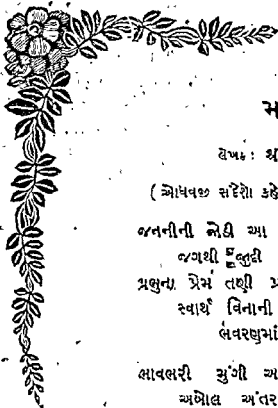 મ
લેખક: શ
(ઓધવજી સંદેશો કહે
જનનીની જોડી આ
જગથી જુદી
પ્રભુના પ્રેમ તણી પ્ર
સ્વાર્થ વિનાની
ભવરણમાં
ભાવભરી મુગી અ
અબોલ અંતર